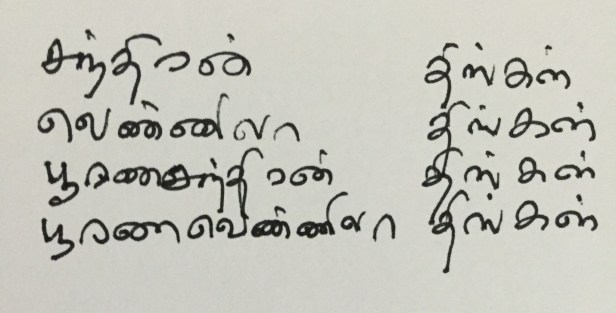 சந்திரன் திங்கள்
வெண்ணிலா திங்கள்
பூரணசந்திரன் திங்கள்
பூரணவெண்ணிலா திங்கள்